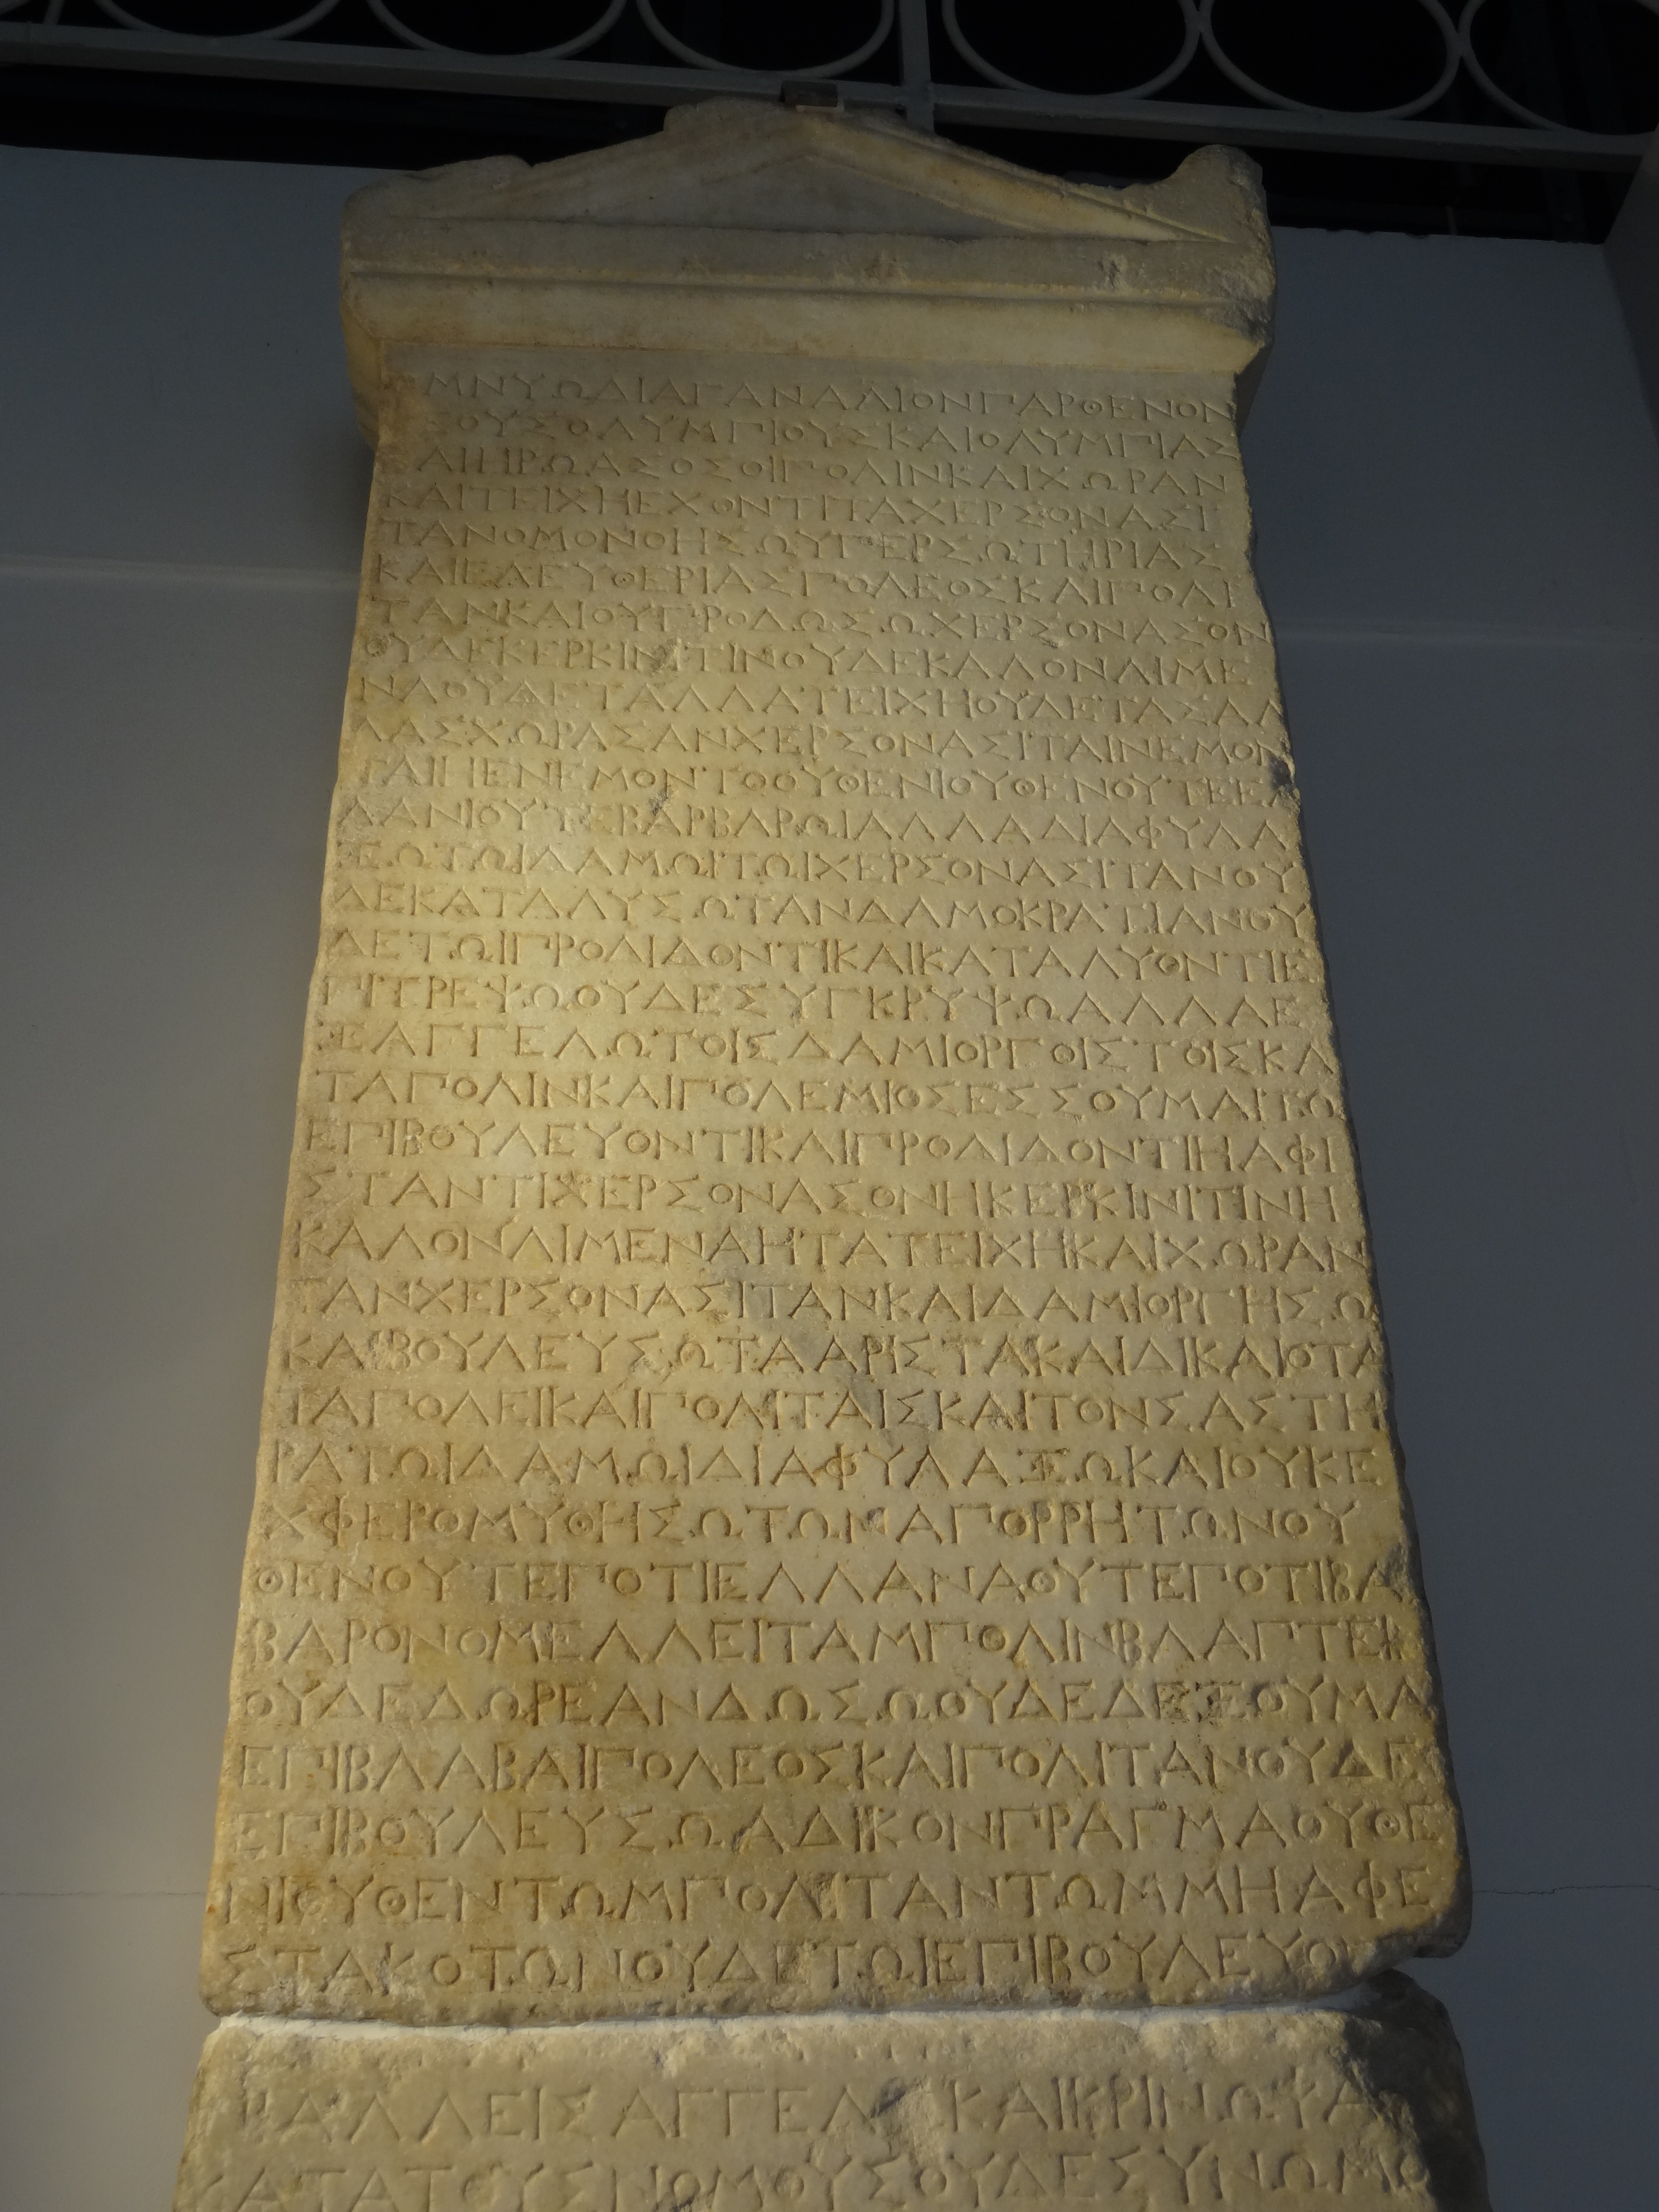 ΜΝΥΩΔΙΑΓΑΝΑΛΙΟΝΠΑΡΘΕΝΟΝ
ΕΟΥΣΟΛΥΜΠΙΟΥΣΚΑΙΟΛΥΜΠΙΑΣ
ΑΙΗΡΩΑΣΟΣΟΙΠΟΛΙΝΚΑΙΧΩΡΑΝ
ΚΑΙΤΕΙΧΗΕΧΟΝΤΙΤΑΧΕΡΣΟΝΑΣΙ
ΤΑΝΟΜΟΝΟΗΣΩΥΠΕΡΣΩΤΗΡΙΑΣ
ΚΑΙΕΛΕΥΘΕΡΙΑΣΠΟΛΕΟΣΚΑΙΠΟΛΙ
ΤΑΝΚΑΙΟΥΠΡΟΔΩΣΩΧΕΡΣΟΝΑΣΟΝ
ΟΥΔΕΚΕΡΚΙΝΙΤΙΝΟΥΔΕΚΑΛΟΝΛΙΜΕ
ΝΑΟΥΔΕΤΑΛΛΑΤΕΙΧΗΟΥΔΕΤΑΣΑΛ
ΛΑΣΧΩΡΑΣΑΝΧΕΡΣΟΝΑΣΙΤΑΙΝΕΜΟΝ
ΤΑΙΗΕΝΕΜΟΝΤΟΟΥΘΕΝΙΟΥΘΕΝΟΥΤΕΕΛ
ΛΑΝΙΟΥΤΕΒΑΡΒΑΡΩΙΑΛΛΑΔΙΑΦΥΛΑ
ΞΩΤΩΙΔΑΜΩΙΤΩΙΧΕΡΣΟΝΑΣΙΤΑΝΟΥ
ΔΕΚΑΤΑΛΥΣΩΤΑΝΔΑΜΟΚΡΑΤΙΑΝΟΥ
ΔΕΤΩΙΠΡΟΔΙΔΟΝΤΙΚΑΙΚΑΤΑΛΥΟΝΤΙΕ
ΠΙΤΡΕΨΩΟΥΔΕΣΥΓΚΡΥΨΩΑΛΛΑΕ
ΞΑΓΓΕΛΩΤΟΙΣΔΑΜΙΟΡΓΟΙΣΤΟΙΣΚΑ
ΤΑΠΟΛΙΝΚΑΙΠΟΛΕΜΙΟΣΕΣΣΟΥΜΑΙΤΩ
ΕΠΙΒΟΥΛΕΥΟΝΤΙΚΑΙΠΡΟΔΙΔΟΝΤΙΗΑΦΙ
ΣΤΑΝΤΙΧΕΡΣΟΝΑΣΟΝΗΚΕΡΚΙΝΙΤΙΝΗ
ΚΑΛΟΝΛΙΜΕΝΑΗΤΑΤΕΙΧΗΚΑΙΧΩΡΑΝ
ΤΑΝΧΕΡΣΟΝΑΣΙΤΑΝΚΑΙΔΑΜΙΟΡΓΗΣΩ
ΚΑΙΒΟΥΛΕΥΣΩΤΑΑΡΙΣΤΑΚΑΙΔΙΚΑΙΟΤΑ
ΤΑΠΟΛΕΙΚΑΙΠΟΛΙΤΑΙΣΚΑΙΤΟΝΣΑΣΤΗ
ΡΑΤΩΙΔΑΜΩΙΔΙΑΦΥΛΑΞΩΚΑΙΟΥΚΕ
ΧΦΕΡΟΜΥΘΗΣΩΤΩΝΑΠΟΡΡΗΤΩΝΟΥ
ΘΕΝΟΥΤΕΠΟΤΙΕΛΛΑΝΑΟΥΤΕΠΟΤΙΒΑ
ΒΑΡΟΝΟΜΕΛΛΕΙΤΑΜΠΟΛΙΝΒΛΑΠΤΕΙΝ
ΟΥΔΕΔΩΡΕΑΝΔΩΣΩΟΥΔΕΔΕΞΟΥΜΑ
ΕΠΙΒΛΑΒΑΙΠΟΛΕΟΣΚΑΙΠΟΛΙΤΑΝΟΥΔΕ
ΕΠΙΒΟΥΛΕΥΣΩΑΔΙΚΟΝΠΡΑΓΜΑΟΥΘΕ
ΝΙΟΥΘΕΝΤΩΜΠΟΛΙΤΑΝΤΩΜΜΗΑΦΕ
ΣΤΑΚΟΤΩΝΟΥΔΕΤΩΙΕΠΙΒΟΥΛΕΥΟΝ
ΑΛΛΕΙΣΑΓΓΕΛ ΚΑΙΚΡΙΝΩΨΑ
ΚΑΤΑΤΟΥΣΝΟΜΟΥΣΟΥΔΕΣΥΝΩΜΟ